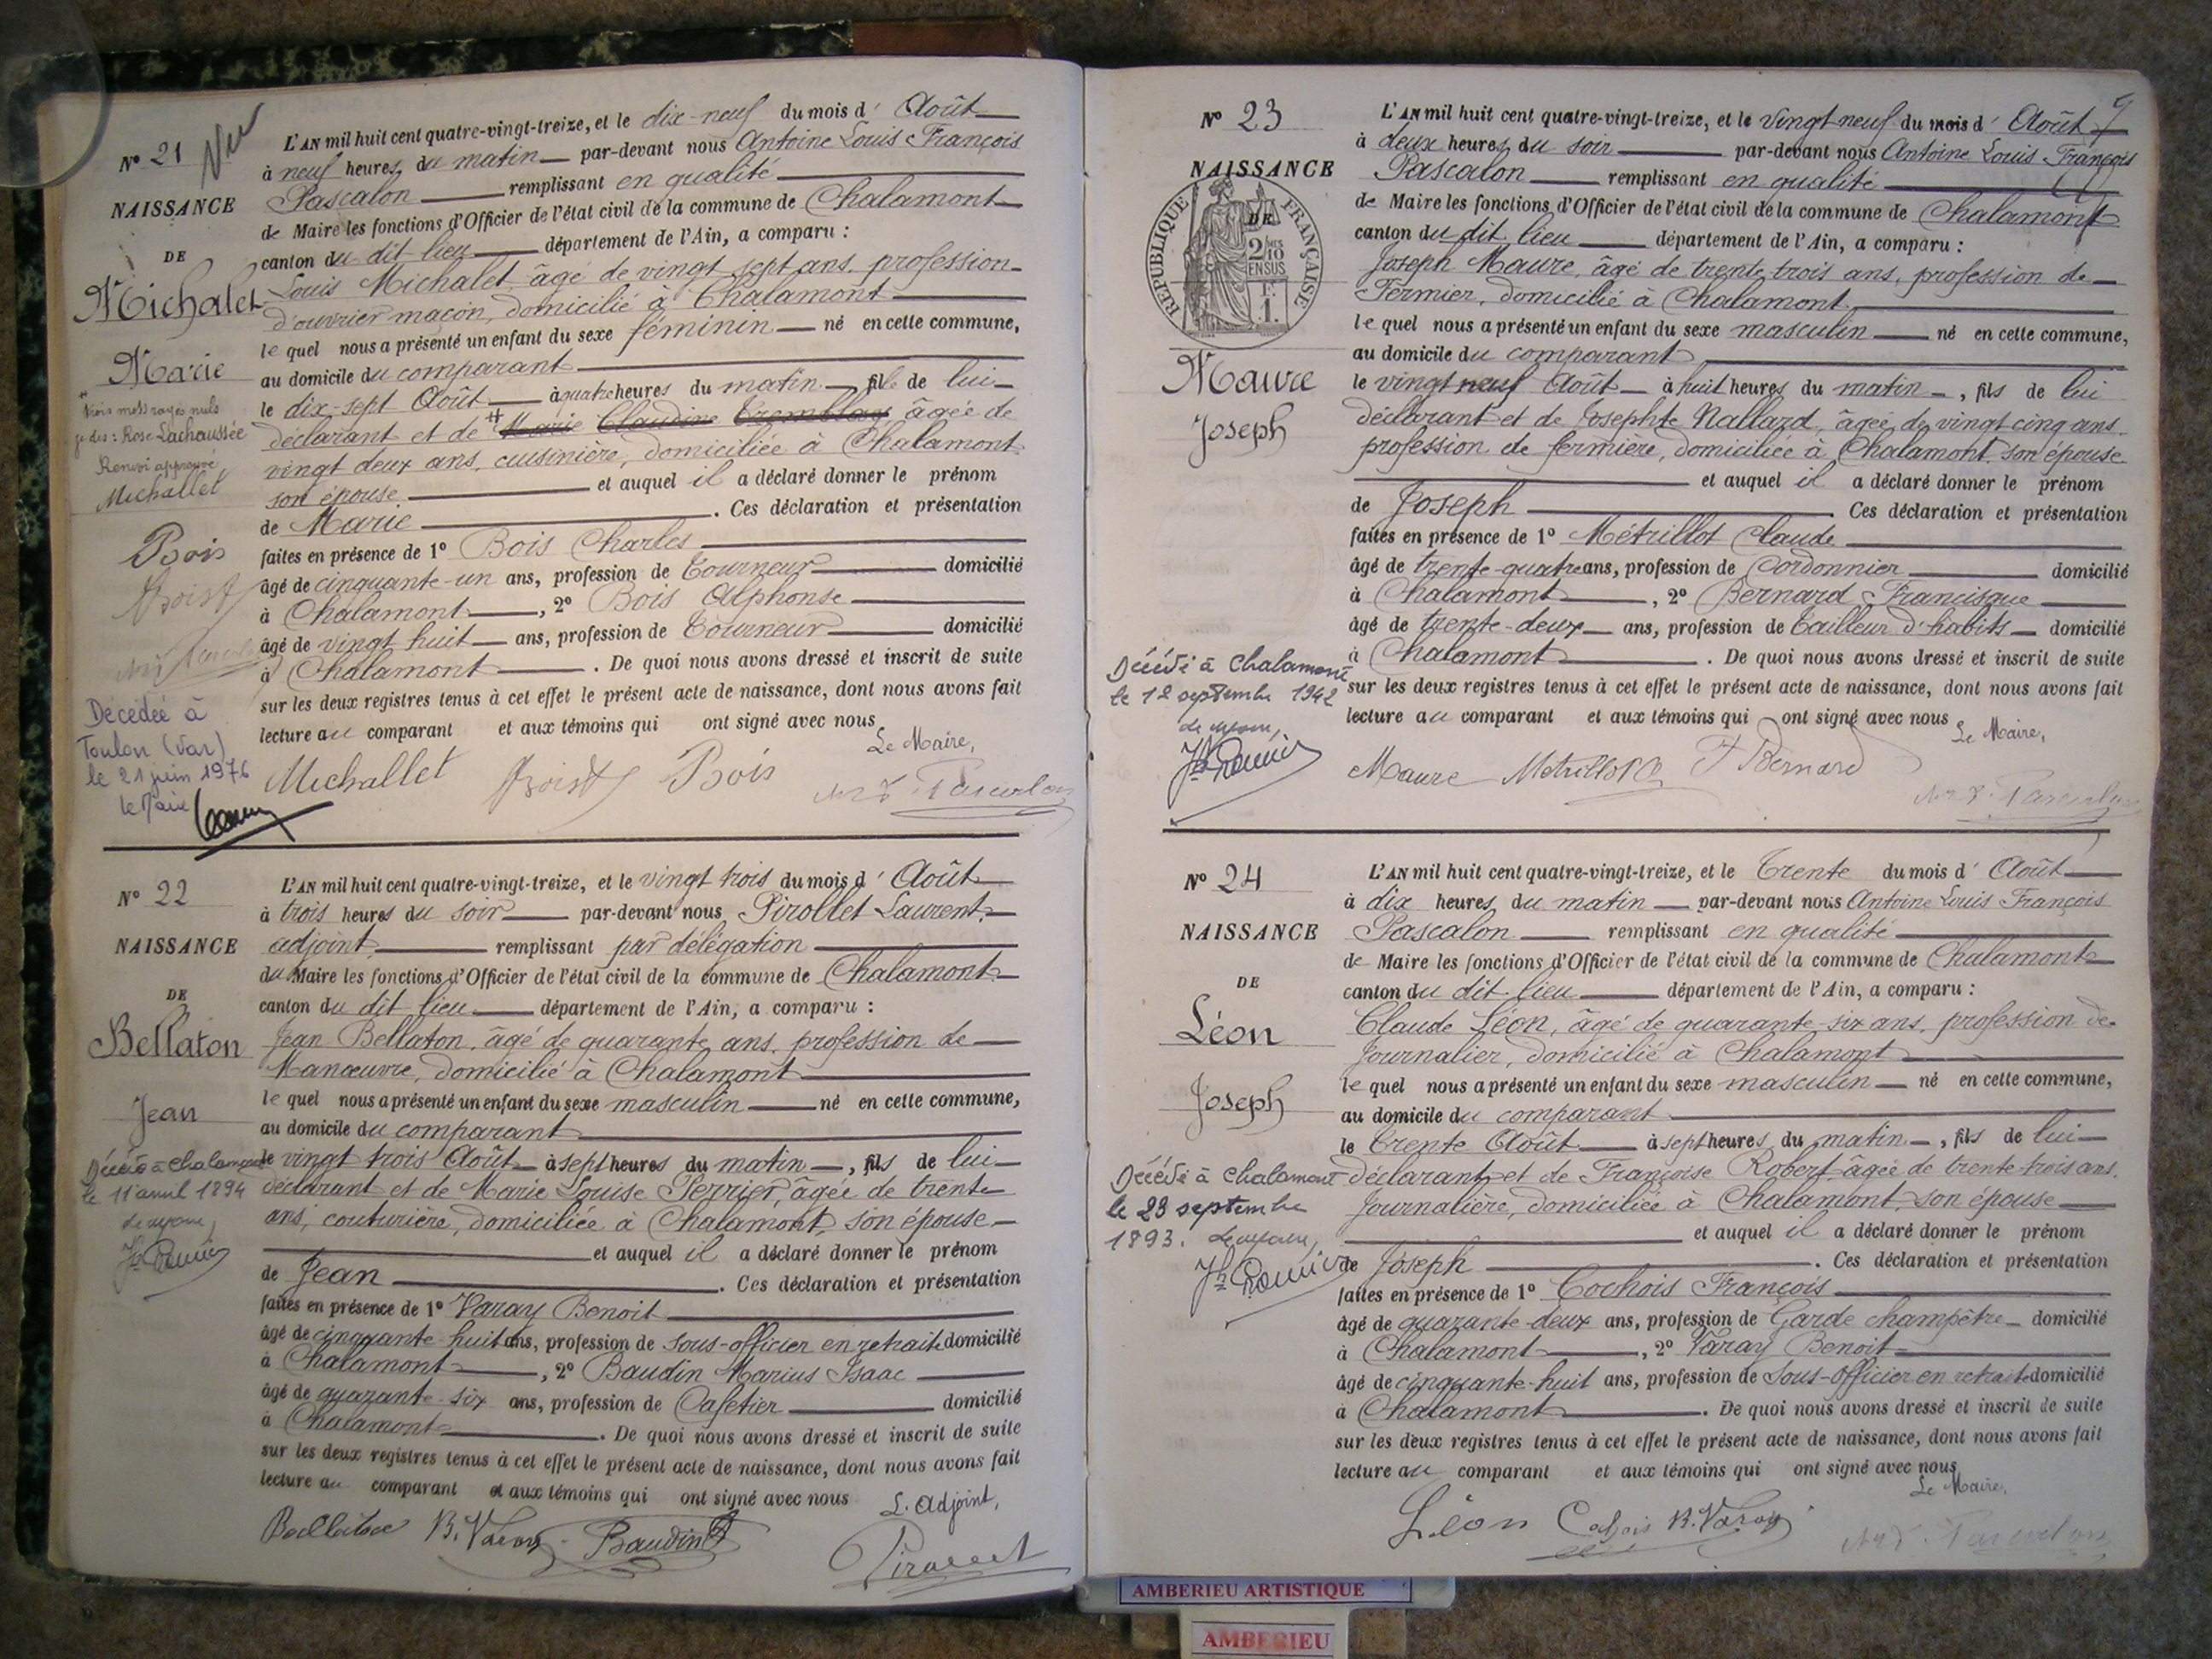 Nº 21
Vu
NAISSANCE
DE
Michalet
Marie
# Trois mots rayés nuls
je dis : Rose Lachaussée
Renvoi approuvé
Michallet
Bois
Décédée à
Toulon (Var)
le 21 juin 1976
le Maire
L'AN mil huit cent quatre-vingt-treize, et le dix-neuf du mois d' Août
à neuf heures du matin par-devant nous Antoine Louis François
Pascalon remplissant en qualité
de Maire les fonctions d'Officier de l'état civil de la commune de Chalamont
canton du dit lieu département de l'Ain, a comparu :
Louis Michalet âgé de vingt sept ans, profession
d'ouvrier maçon, domicilié à Chalamont
lequel nous a présenté un enfant du sexe féminin né en cette commune,
au domicile du comparant
le dix-sept Août à quatre heures du matin, fils de lui
déclarant et de # Marie Claudine Tremblay âgée de
vingt deux ans, cuisinière, domiciliée à Chalamont
son épouse et auquel il a déclaré donner le prénom
de Marie . Ces déclaration et présentation
faites en présence de 1º Bois Charles
âgé de cinquante-un ans, profession de Tourneur domicilié
à Chalamont , 2º Bois Alphonse
âgé de vingt huit ans, profession de Tourneur domicilié
à Chalamont . De quoi nous avons dressé et inscrit de suite
sur les deux registres tenus à cet effet le présent acte de naissance, dont nous avons fait
lecture au comparant et aux témoins qui ont signé avec nous
Le Maire,
Michallet Bois Pascalon
Nº 22
NAISSANCE
DE
Bellaton
Jean
Décédé à Chalamont
le 11 avril 1894
L'AN mil huit cent quatre-vingt-treize, et le vingt trois du mois d' Août
à trois heures du soir par-devant nous Pirollet Laurent,
adjoint, remplissant par délégation
du Maire les fonctions d'Officier de l'état civil de la commune de Chalamont
canton du dit lieu département de l'Ain, a comparu :
Jean Bellaton, âgé de quarante ans, profession de
Manœuvre, domicilié à Chalamont
lequel nous a présenté un enfant du sexe masculin né en cette commune,
au domicile du comparant
le vingt trois Août à sept heures du matin , fils de lui
déclarant et de Marie Louise Perrier, âgée de trente
ans, couturière, domiciliée à Chalamont, son épouse
et auquel il a déclaré donner le prénom
de Jean . Ces déclaration et présentation
faites en présence de 1º Varay Benoit
âgé de cinquante-huit ans, profession de sous-officier en retraite domicilié
à Chalamont , 2º Baudin Marius Isaac
âgé de quarante-six ans, profession de Cafetier domicilié
à Chalamont . De quoi nous avons dressé et inscrit de suite
sur les deux registres tenus à cet effet le présent acte de naissance, dont nous avons fait
lecture au comparant et aux témoins qui ont signé avec nous
L. Adjoint,
B. Varay Baudin Pirollet
Nº 23
NAISSANCE
DE
RÉPUBLIQUE FRANÇAISE
2/10
EN SUS
1.
Maure
Joseph
Décédé à Chalamont
le 12 septembre 1942
L'AN mil huit cent quatre-vingt-treize, et le vingt neuf du mois d' Août
à deux heures du soir par-devant nous Antoine Louis François
Pascalon remplissant en qualité
de Maire les fonctions d'Officier de l'état civil de la commune de Chalamont
canton du dit lieu département de l'Ain, a comparu :
Joseph Maure, âgé de trente trois ans, profession de
Fermier, domicilié à Chalamont
lequel nous a présenté un enfant du sexe masculin né en cette commune,
au domicile du comparant
le vingt neuf Août à huit heures du matin , fils de lui
déclarant et de Josephte Nallard, âgée de vingt cinq ans,
profession de fermière, domiciliée à Chalamont, son épouse
et auquel il a déclaré donner le prénom
de Joseph . Ces déclaration et présentation
faites en présence de 1º Métrillot Claude
âgé de trente-quatre ans, profession de Cordonnier domicilié
à Chalamont , 2º Bernard Francisque
âgé de trente-deux ans, profession de Tailleur d'habits domicilié
à Chalamont . De quoi nous avons dressé et inscrit de suite
sur les deux registres tenus à cet effet le présent acte de naissance, dont nous avons fait
lecture au comparant et aux témoins qui ont signé avec nous
Le Maire,
Maure Métrillot C F Bernard Pascalon
Nº 24
NAISSANCE
DE
Léon
Joseph
Décédé à Chalamont
le 23 septembre
1893.
L'AN mil huit cent quatre-vingt-treize, et le Trente du mois d' Août
à dix heures du matin par-devant nous Antoine Louis François
Pascalon remplissant en qualité
de Maire les fonctions d'Officier de l'état civil de la commune de Chalamont
canton du dit lieu département de l'Ain, a comparu :
Claude Léon, âgé de quarante-six ans, profession de
Journalier, domicilié à Chalamont
lequel nous a présenté un enfant du sexe masculin né en cette commune,
au domicile du comparant
le Trente Août à sept heures du matin , fils de lui
déclarant et de Françoise Robert âgée de trente-trois ans,
Journalière, domiciliée à Chalamont, son épouse
et auquel il a déclaré donner le prénom
de Joseph . Ces déclaration et présentation
faites en présence de 1º Cochois François
âgé de quarante-deux ans, profession de Garde champêtre domicilié
à Chalamont , 2º Varay Benoit
âgé de cinquante-huit ans, profession de Sous-officier en retraite domicilié
à Chalamont . De quoi nous avons dressé et inscrit de suite
sur les deux registres tenus à cet effet le présent acte de naissance, dont nous avons fait
lecture au comparant et aux témoins qui ont signé avec nous
Le Maire,
Léon Cochois B. Varay Pascalon
AMBERIEU ARTISTIQUE
AMBERIEU